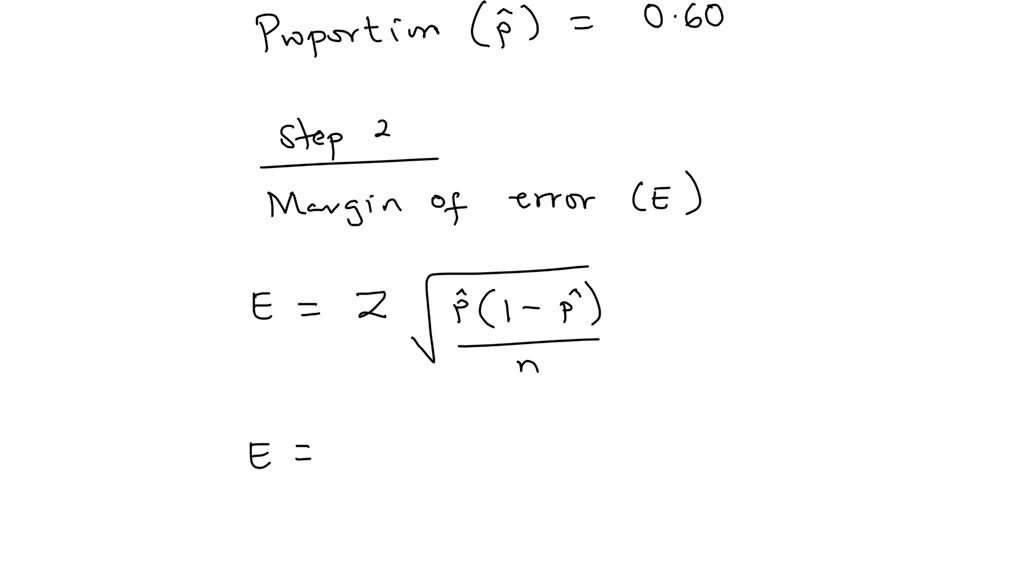 Proportim (p̂) = 0.60
Step 2
Margin of error (E)
E = Z √ p̂(1 - p^) / n
E =